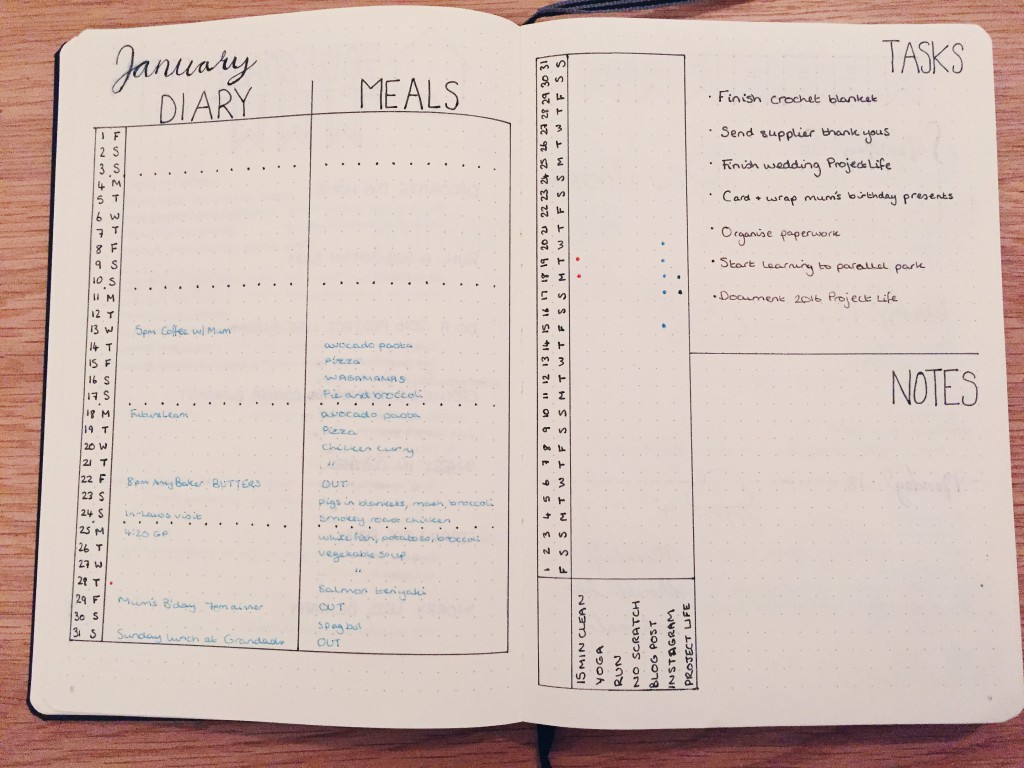 January
DIARY
MEALS
1 F
2 S
3 S
4 M
5 T
6 W
7 T
8 F
9 S
10 S
11 M
12 T
13 W 5pm Coffee w/ Mum
14 T avocado pasta
15 F pizza
16 S WAGAMAMAS
17 S Pie and broccoli
18 M FutureLearn avocado pasta
19 T Pizza
20 W Chicken curry
21 T "
22 F 8pm Amy Baker BUTTERS OUT
23 S pigs in blankets, mash, broccoli
24 S In-Laws visit Smokey roast chicken
25 M 4:20 GP white fish, potatoes, broccoli
26 T vegetable soup
27 W "
28 T Salmon teriyaki
29 F Mum's B'day 7pm dinner OUT
30 S spag bol
31 S Sunday lunch at Grandads OUT
31 S
30 S
29 F
28 T
27 W
26 T
25 M
24 S
23 S
22 F
21 T
20 W
19 T
18 M
17 S
16 S
15 F
14 T
13 W
12 T
11 M
10 S
9 S
8 F
7 T
6 W
5 T
4 M
3 S
2 S
1 F
15 MIN CLEAN
YOGA
RUN
NO SCRATCH
BLOG POST
INSTAGRAM
PROJECT LIFE
TASKS
· Finish crochet blanket
· Send supplier thank yous
· Finish wedding Project Life
· Card + wrap mum's birthday presents
· Organise paperwork
· Start learning to parallel park
· Document 2016 Project Life
NOTES